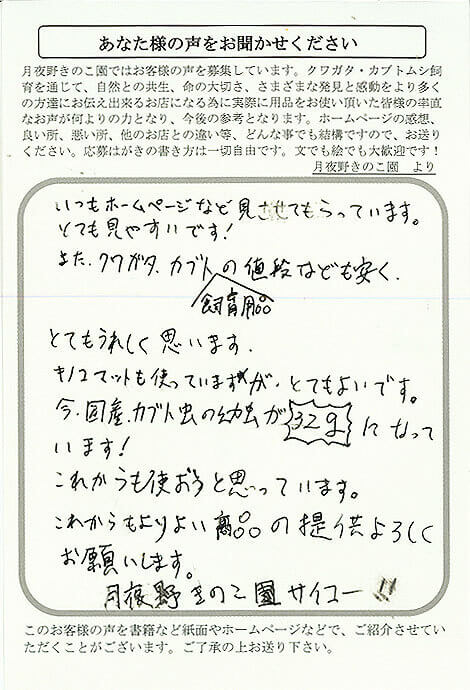 あなた様の声をお聞かせください
月夜野きのこ園ではお客様の声を募集しています。クワガタ・カブトムシ飼
育を通じて、自然との共生、命の大切さ、さまざまな発見と感動をより多く
の方達にお伝え出来るお店になる為に実際に用品をお使い頂いた皆様の率直
なお声が何よりの力となり、今後の参考となります。ホームページの感想、
良い所、悪い所、他のお店との違い等、どんな事でも結構ですので、お送り
ください。応募はがきの書き方は一切自由です。文でも絵でも大歓迎です！
月夜野きのこ園　より
いつもホームページなど見させてもらっています。
とても見やすいです!
また、クワガタ、カブトの値段なども安く、
飼育用品
とてもうれしく思います。
キノコマットも使っていますが、とてもよいです。
今、国産カブト虫の幼虫が32gになって
います!
これからも使おうと思っています。
これからもよりよい商品の提供よろしく
お願いします。
月夜野きのこ園サイコー!!
このお客様の声を書籍など紙面やホームページなどで、ご紹介させてい
ただくことがございます。ご了承の上お送り下さい。